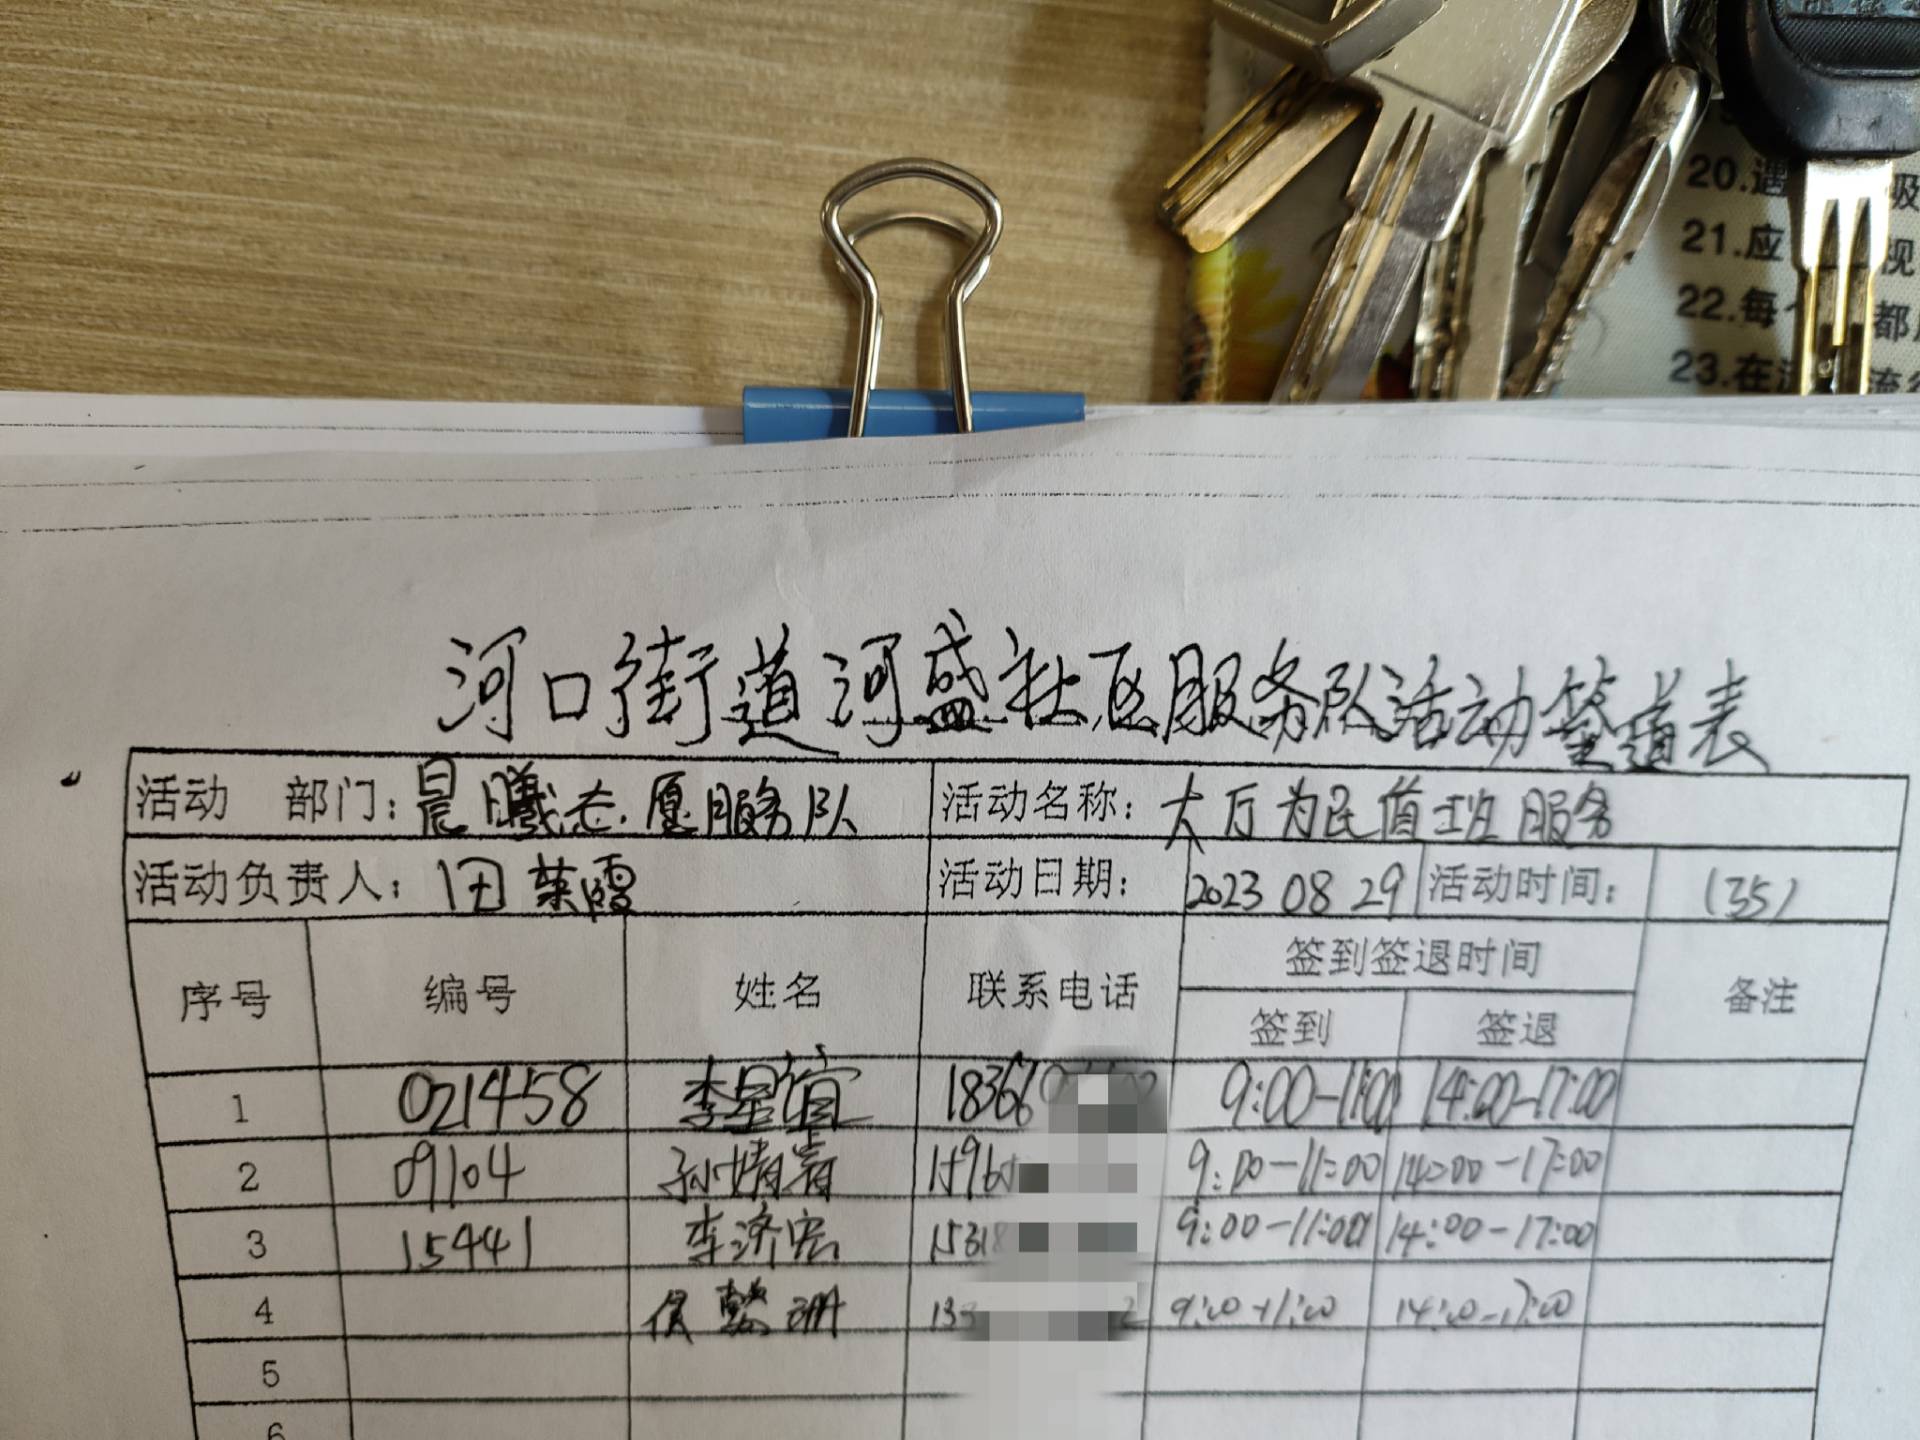 20.遇 吸
21.应 视
22.每个 都
23.在 流行
河口街道河盛社区服务队活动签道表
活动 部门：晨曦志愿服务队 活动名称：大厅为民值班服务
活动负责人：田莱霞 活动日期： 2023 08 29 活动时间： (35)
序号 编号 姓名 联系电话 签到签退时间 备注
签到 签退
1 021458 李星谊 18366 9:00-11:00 14:00-17:00
2 09104 孙婧睿 1596 9:00-11:00 14:00-17:00
3 15441 李济宏 1531 9:00-11:00 14:00-17:00
4 侯 13 2 9:00-11:00 14:00-17:00
5
6